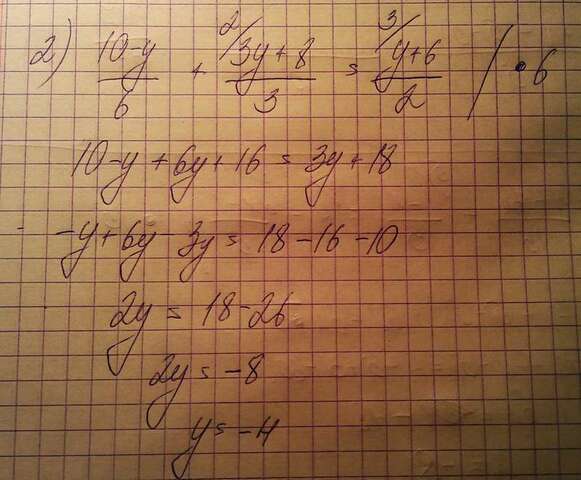 2) (10-y)/6 + 2/(3y+8)/3 = 3/(y+6)/2 / · 6
10-y+6y+16 = 3y+18
-y+6y-3y = 18-16-10
2y = 18-26
2y = -8
y = -4